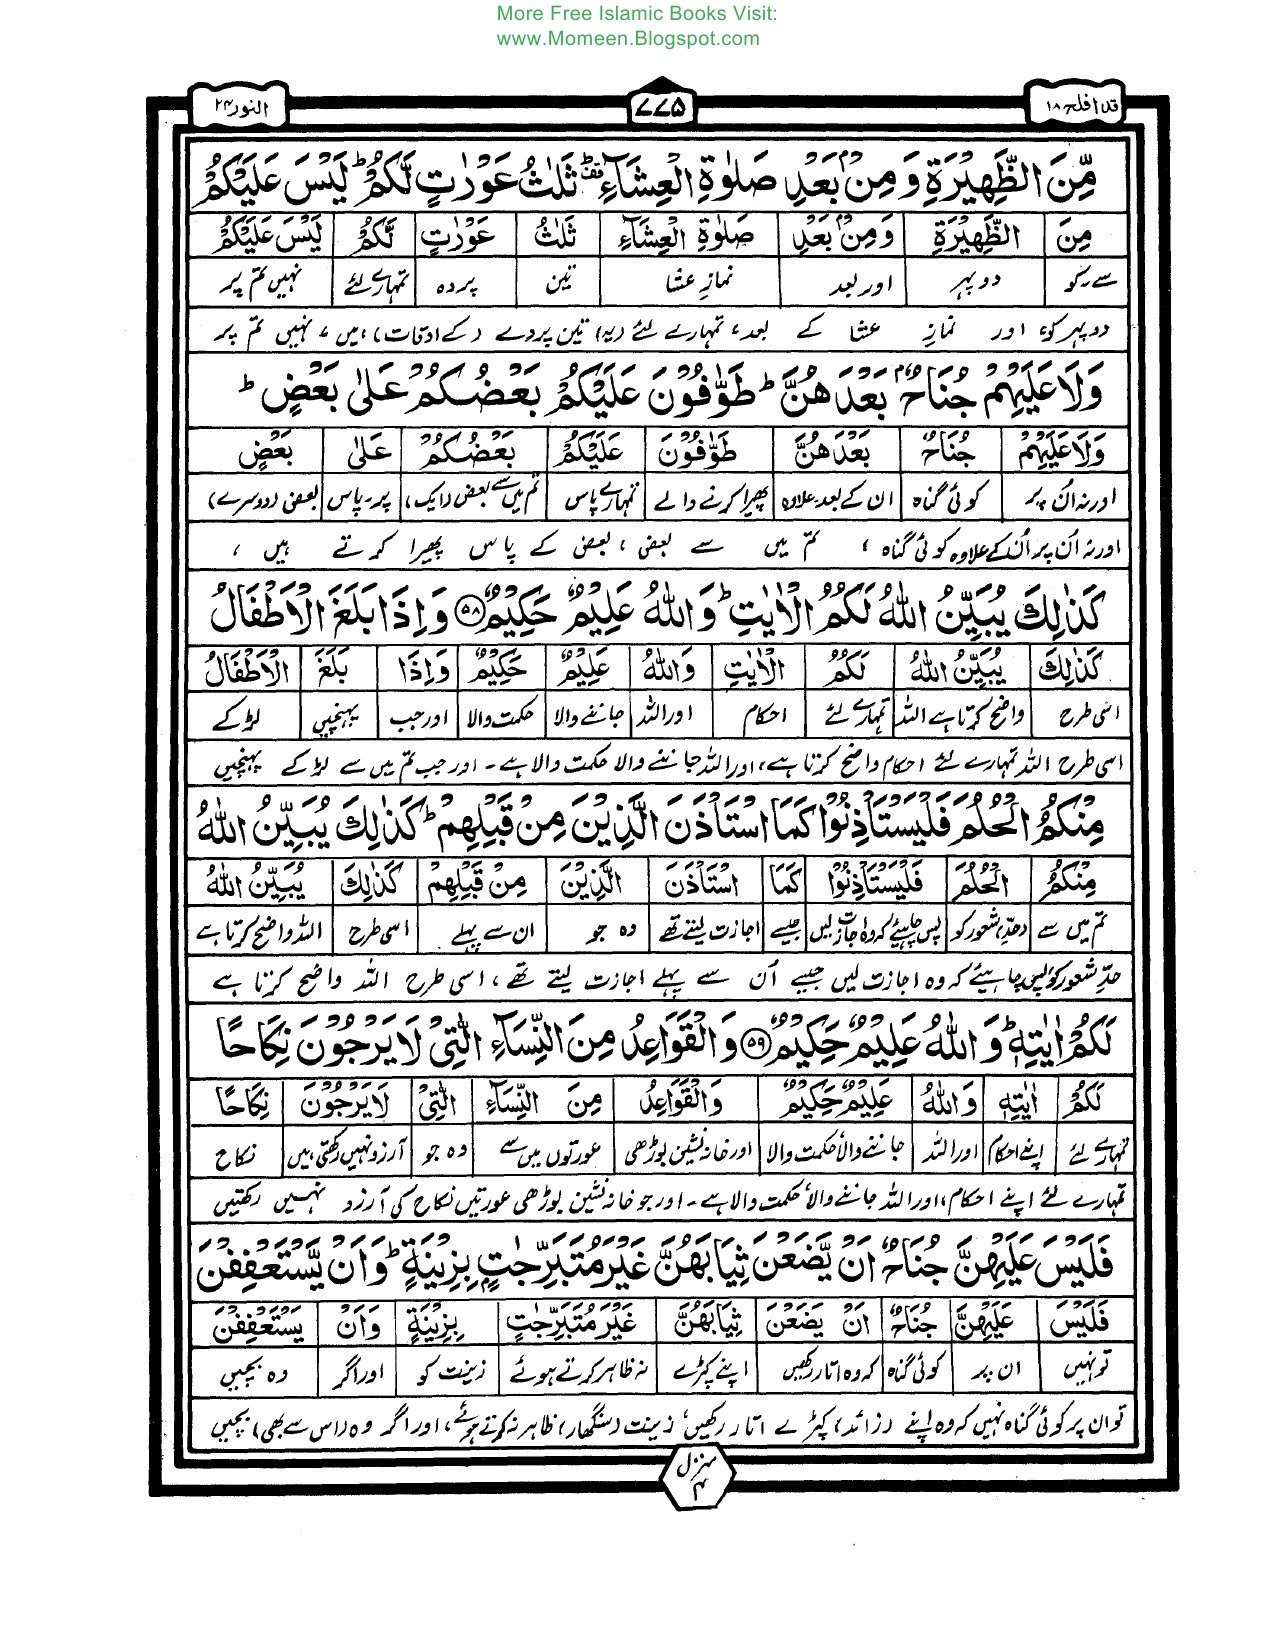 More Free Islamic Books Visit:
www.Momeen.Blogspot.com
قد افلح ۱۸ ۷۷۵ النور ۲۴
مِّنَ الظَّهِيْرَةِ وَ مِنْۢ بَعْدِ صَلٰوةِ الْعِشَآءِ ۛ۫ ثَلٰثُ عَوْرٰتٍ لَّكُمْ ؕ لَيْسَ عَلَيْكُمْ
مِنَ الظَّهِيْرَةِ وَمِنْۢ بَعْدِ صَلٰوةِ الْعِشَآءِ ثَلٰثُ عَوْرٰتٍ لَّكُمْ لَيْسَ عَلَيْكُمْ
سے۔کو دوپہر اور بعد نمازِ عشا تین پردہ تمہارے لئے نہیں تم پر
دوپہر کو، اور نمازِ عشا کے بعد، تمہارے لئے (یہ) تین پردے (کے اوقات) ہیں، نہیں تم پر
وَلَا عَلَيْهِمْ جُنَاحٌۢ بَعْدَهُنَّ ؕ طَوّٰفُوْنَ عَلَيْكُمْ بَعْضُكُمْ عَلٰى بَعْضٍ ؕ
وَلَا عَلَيْهِمْ جُنَاحٌ بَعْدَهُنَّ طَوّٰفُوْنَ عَلَيْكُمْ بَعْضُكُمْ عَلٰى بَعْضٍ
اور نہ اُن پر کوئی گناہ ان کے بعد۔علاوہ پھیرا کرنے والے تمہارے پاس تم میں سے بعض (ایک) پر۔پاس بعض (دوسرے)
اور نہ اُن پر اُن کے علاوہ کوئی گناہ، تم میں سے بعض، بعض کے پاس پھیرا کرتے ہیں،
كَذٰلِكَ يُبَيِّنُ اللّٰهُ لَكُمُ الْاٰيٰتِ ؕ وَاللّٰهُ عَلِيْمٌ حَكِيْمٌ ۵۸ وَاِذَا بَلَغَ الْاَطْفَالُ
كَذٰلِكَ يُبَيِّنُ اللّٰهُ لَكُمُ الْاٰيٰتِ وَاللّٰهُ عَلِيْمٌ حَكِيْمٌ وَاِذَا بَلَغَ الْاَطْفَالُ
اسی طرح واضح کرتا ہے اللہ تمہارے لئے احکام اور اللہ جاننے والا حکمت والا اور جب پہنچیں لڑکے
اسی طرح اللہ تمہارے لئے احکام واضح کرتا ہے، اور اللہ جاننے والا حکمت والا ہے۔ اور جب تم میں سے لڑکے پہنچیں
مِنْكُمُ الْحُلُمَ فَلْيَسْتَاْذِنُوْا كَمَا اسْتَاْذَنَ الَّذِيْنَ مِنْ قَبْلِهِمْ ؕ كَذٰلِكَ يُبَيِّنُ اللّٰهُ
مِنْكُمُ الْحُلُمَ فَلْيَسْتَاْذِنُوْا كَمَا اسْتَاْذَنَ الَّذِيْنَ مِنْ قَبْلِهِمْ كَذٰلِكَ يُبَيِّنُ اللّٰهُ
تم میں سے (حدِّ) شعور کو پس چاہیئے کہ وہ اجازت لیں جیسے اجازت لیتے تھے وہ جو ان سے پہلے اسی طرح اللہ واضح کرتا ہے
حدِّ شعور کو پس چاہیئے کہ وہ اجازت لیں جیسے اُن سے پہلے اجازت لیتے تھے، اسی طرح اللہ واضح کرتا ہے
لَكُمْ اٰيٰتِهٖ ؕ وَاللّٰهُ عَلِيْمٌ حَكِيْمٌ ۵۹ وَالْقَوَاعِدُ مِنَ النِّسَآءِ الّٰتِيْ لَا يَرْجُوْنَ نِكَاحًا
لَكُمْ اٰيٰتِهٖ وَاللّٰهُ عَلِيْمٌ حَكِيْمٌ وَالْقَوَاعِدُ مِنَ النِّسَآءِ الّٰتِيْ لَا يَرْجُوْنَ نِكَاحًا
تمہارے لئے اپنے احکام اور اللہ جاننے والا، حکمت والا اور خانہ نشین بوڑھی عورتوں میں سے وہ جو آرزو نہیں رکھتی ہیں نکاح
تمہارے لئے اپنے احکام، اور اللہ جاننے والا، حکمت والا ہے۔ اور جو خانہ نشین بوڑھی عورتیں نکاح کی آرزو نہیں رکھتیں
فَلَيْسَ عَلَيْهِنَّ جُنَاحٌ اَنْ يَّضَعْنَ ثِيَابَهُنَّ غَيْرَ مُتَبَرِّجٰتٍۭ بِزِيْنَةٍ ؕ وَاَنْ يَّسْتَعْفِفْنَ
فَلَيْسَ عَلَيْهِنَّ جُنَاحٌ اَنْ يَّضَعْنَ ثِيَابَهُنَّ غَيْرَ مُتَبَرِّجٰتٍ بِزِيْنَةٍ وَاَنْ يَسْتَعْفِفْنَ
تو نہیں ان پر کوئی گناہ کہ وہ اتار رکھیں اپنے کپڑے نہ ظاہر کرتے ہوئے زینت کو اور اگر وہ بچیں
تو ان پر کوئی گناہ نہیں کہ وہ اپنے (زائد) کپڑے اتار رکھیں، زینت (سنگھار) ظاہر نہ کرتے ہوئے، اور اگر وہ (اس سے بھی) بچیں
منزل ۴